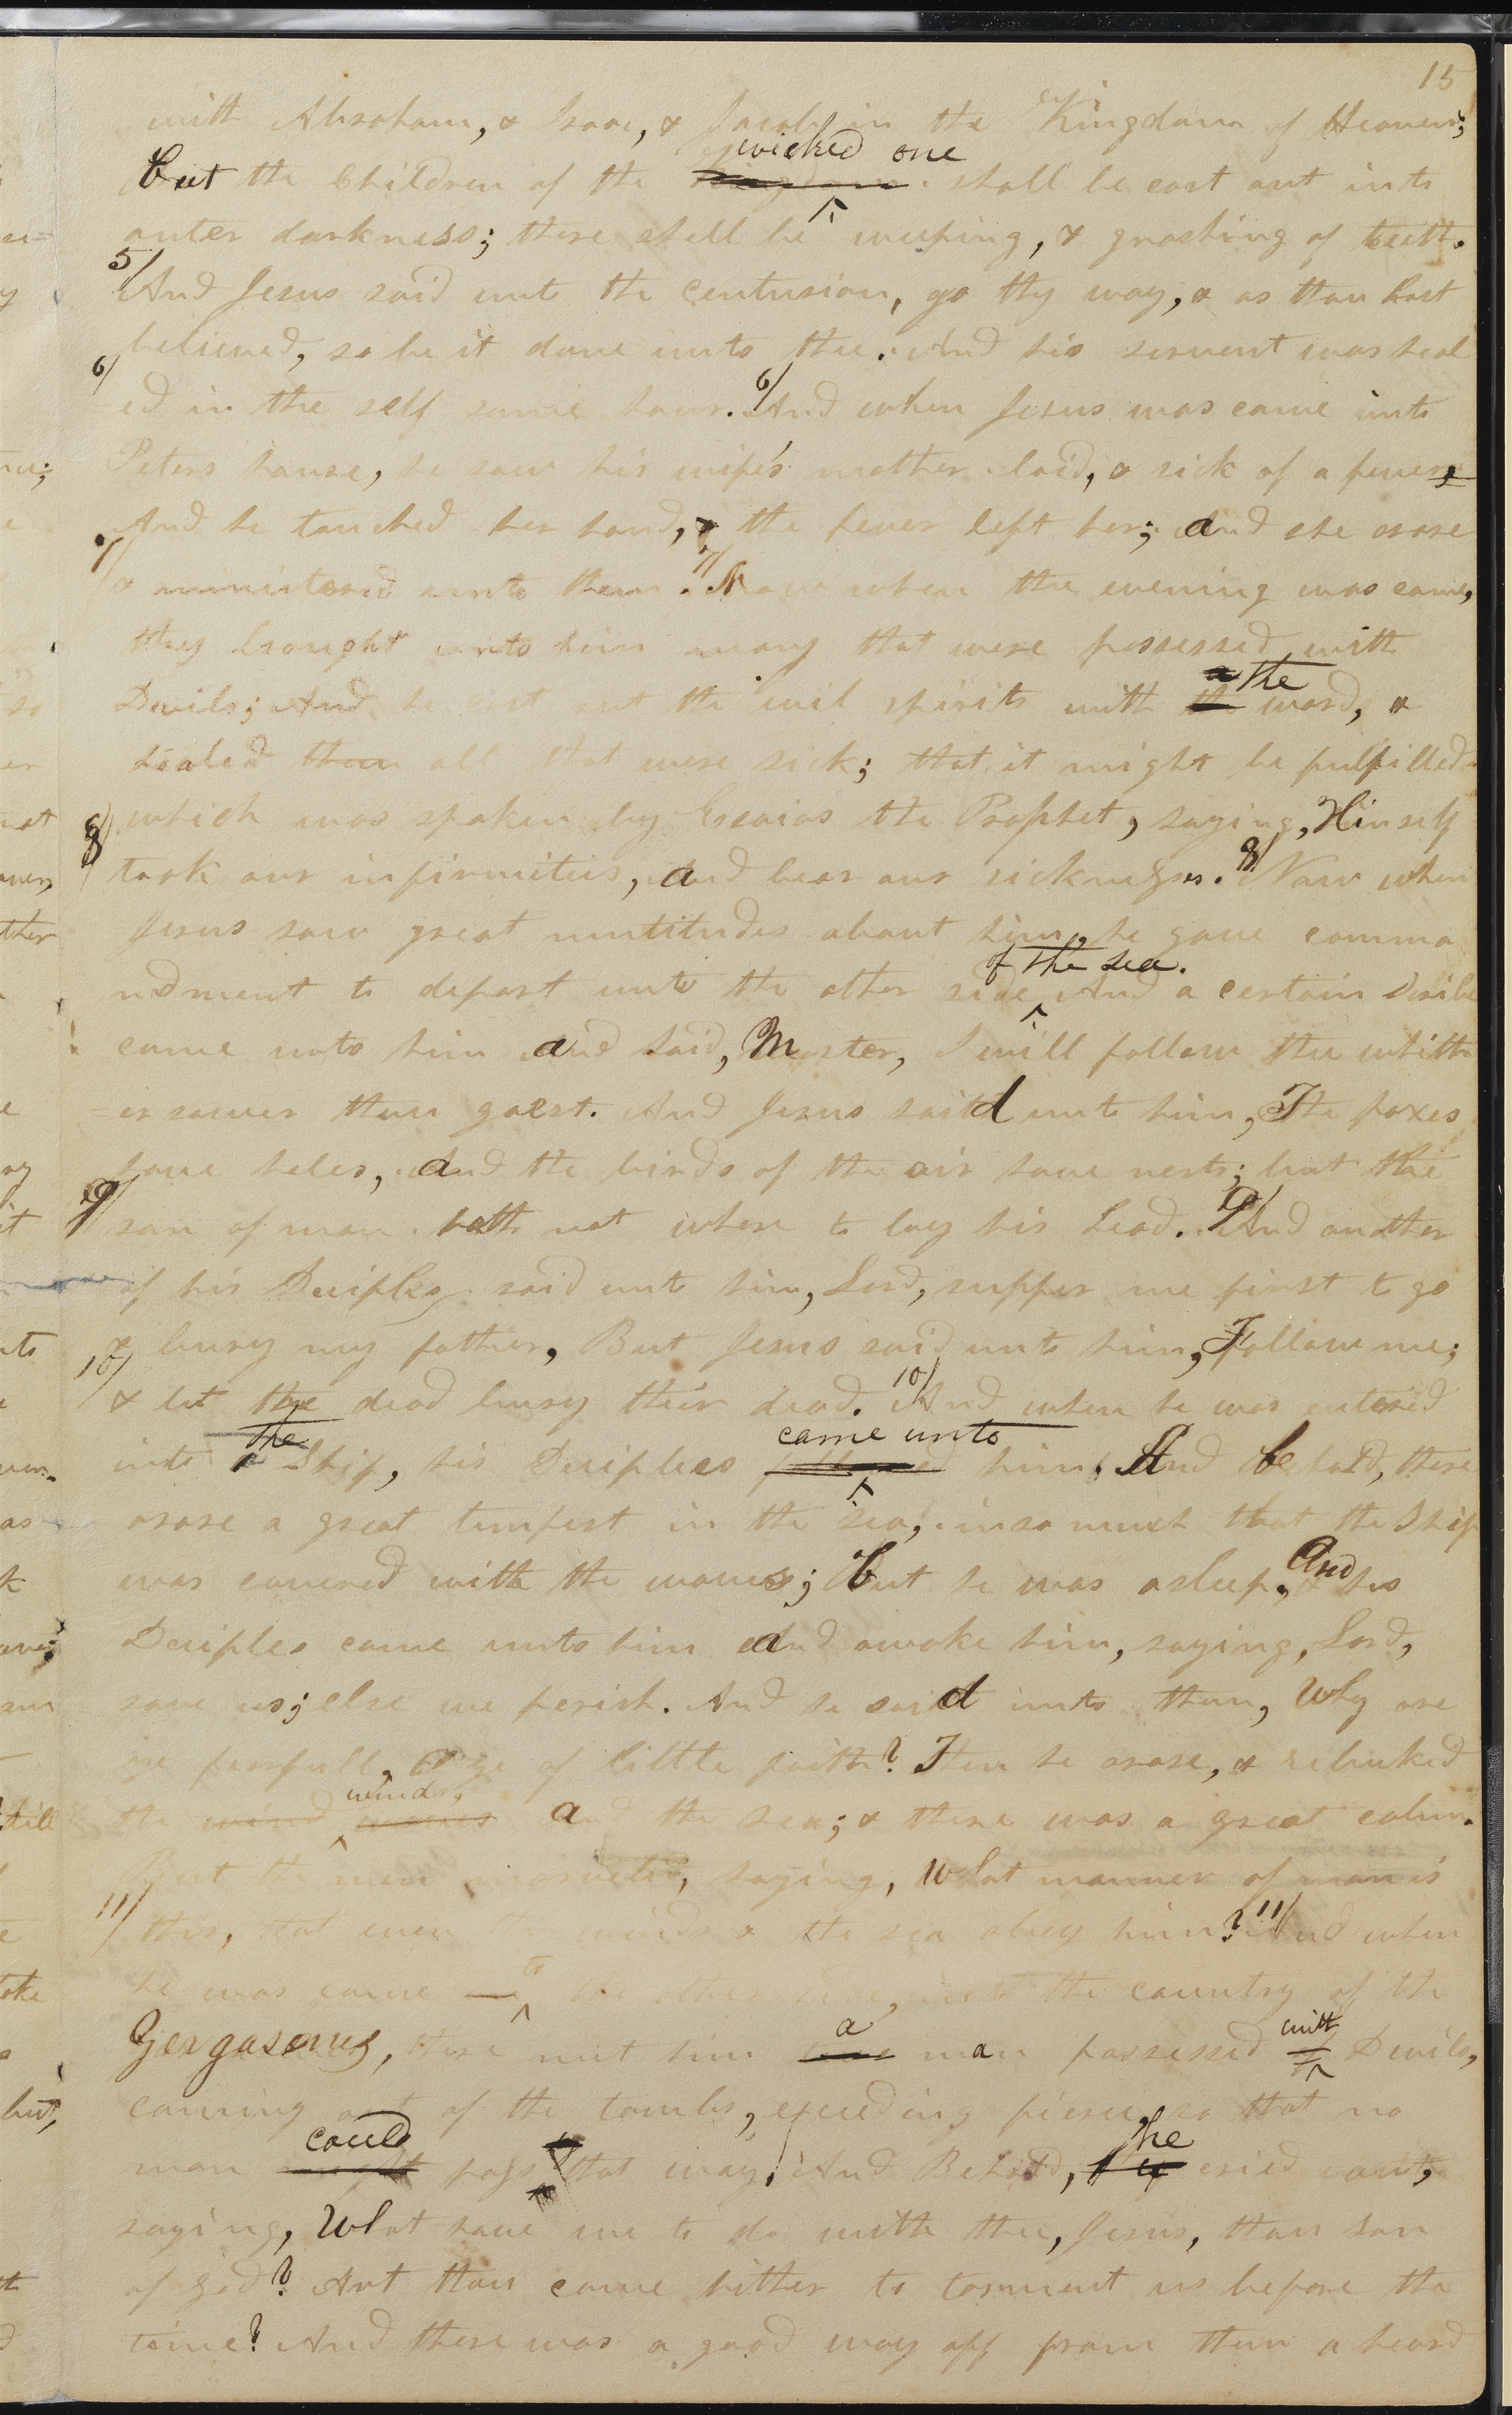 15
with Abraham, & Isaac, & Jacob in the Kingdom of Heaven;
wicked one
but the Children of the kingdom shall be cast out into
outer darkness; there shall be weeping, & gnashing of teeth.
5/ And Jesus said unto the Centurian, go thy way, & as thou hast
believed, so be it done unto thee. And his servent was heal
6/ ed in the self same hour. 6/ And when Jesus was come into
Peters house, he saw his wife's mother laid, & sick of a fever,
And he touched her hand, & the fever left her; and she arose
7/ & ministered unto them. 7/ Now when the evening was come,
they brought unto him many that were possessed with
a the
Devils; And he cast out the evil spirits with the word, &
healed them all that were sick; that it might be fulfilled
which was spoken by Esaias the Prophet, saying, Himself
8/ took our infirmities, and bear our sicknesses. 8/ Now when
Jesus saw great multitudes about him, he gave comma
of the sea.
ndment to depart unto the other side And a certain Scribe
came unto him and said, Master, I will follow thee whith
=ersoever thou goest. And Jesus said unto him, The foxes
have holes, and the birds of the air have nests; but the
9/ son of man hath not where to lay his head. 9/ And another
of his Deciples said unto him, Lord, suffer me first to go
& bury my father, But Jesus said unto him, Follow me;
10/ & let the dead bury their dead. 10/ And when he was entered
the came unto
into a Ship, his Deciples followed him, And behold, there
arose a great tempest in the sea, insomuch that the Ship
was covered with the waves; but he was asleep. And his
Deciples came unto him and awoke him, saying, Lord,
save us; else we perish. And he said unto them, Why are
ye fearfull, O ye of little faith? Then he arose, & rebuked
winds,
the wind waves and the sea; & there was a great calm.
But the men marveled, saying, What manner of man is
11/ this, that even the winds & the sea obey him? 11/ And when
to
he was come the other side, into the country of the
a with
Gergasenes, there met him man possessed Devils,
coming out of the tombs, exceding fierce, so that no
could he
man might pass that way. And Behold, they cried out,
saying, What have we to do with thee, Jesus, thou son
of god? Art thou come hither to torment us before the
time? And there was a good way off from them a heard